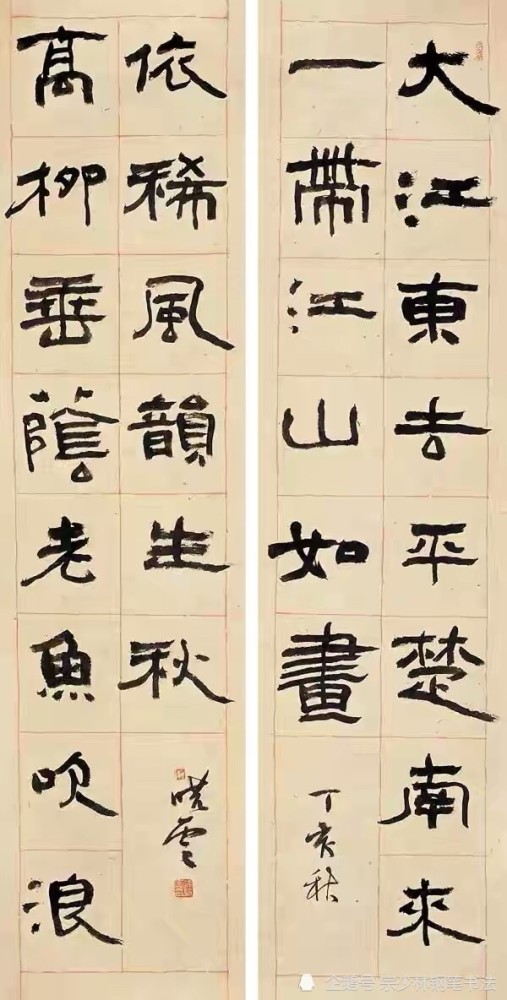 大江東去平楚南來
一帶江山如畫
丁亥秋
高柳垂蔭老魚吹浪
依稀風韻生秋
曉雲
企鹅号 少林钢笔书法